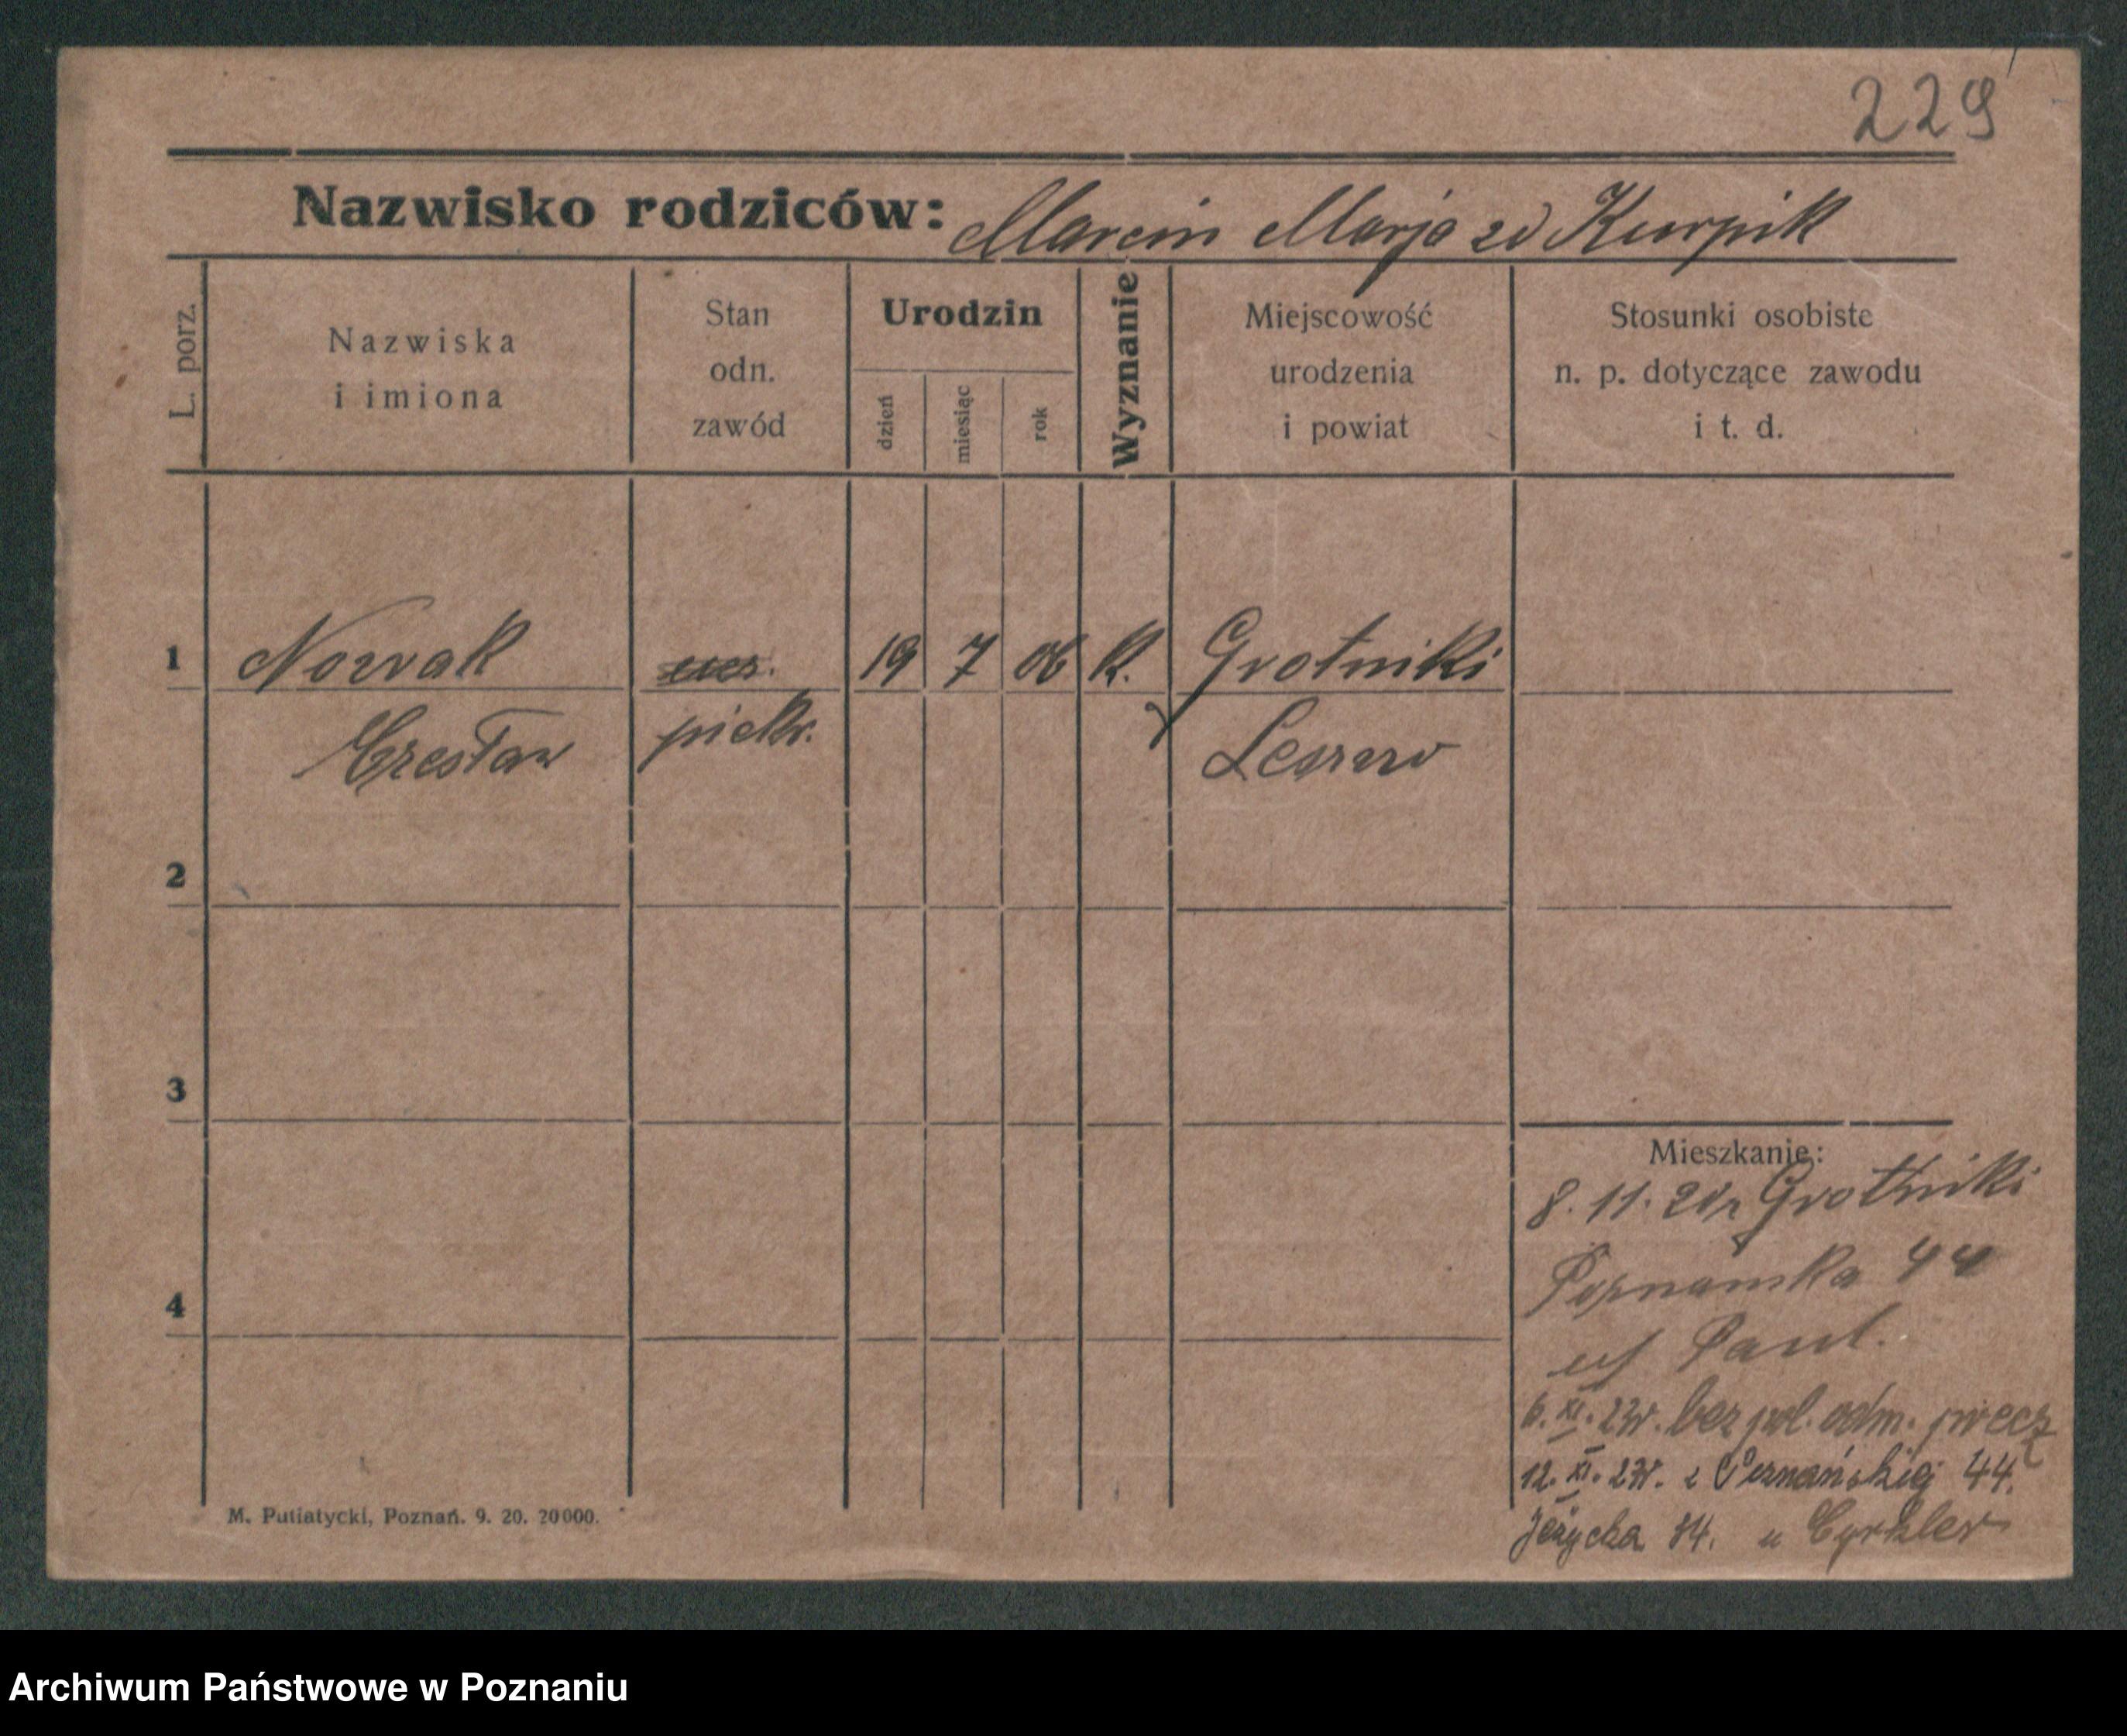 229
Nazwisko rodziców: Marcin Marja zd Kurpik
L. porz.
Nazwiska
i imiona
Stan
odn.
zawód
Urodzin
dzień
miesiąc
rok
Wyznanie
Miejscowość
urodzenia
i powiat
Stosunki osobiste
n. p. dotyczące zawodu
i t. d.
1 Nowak ucz. 19 7 06 k. Grotniki
Czesław piekr. Leszno
2
3
4
Mieszkanie:
8. 11. Grotniki
Poznańska 44
Paul.
6. XI. 23r. bez pol. odm. precz
12. XI. 23r. z Poznańskiej 44.
Jeżycka 84. u Cyrkler
M. Putiatycki, Poznań. 9. 20. 20000.
Archiwum Państwowe w Poznaniu